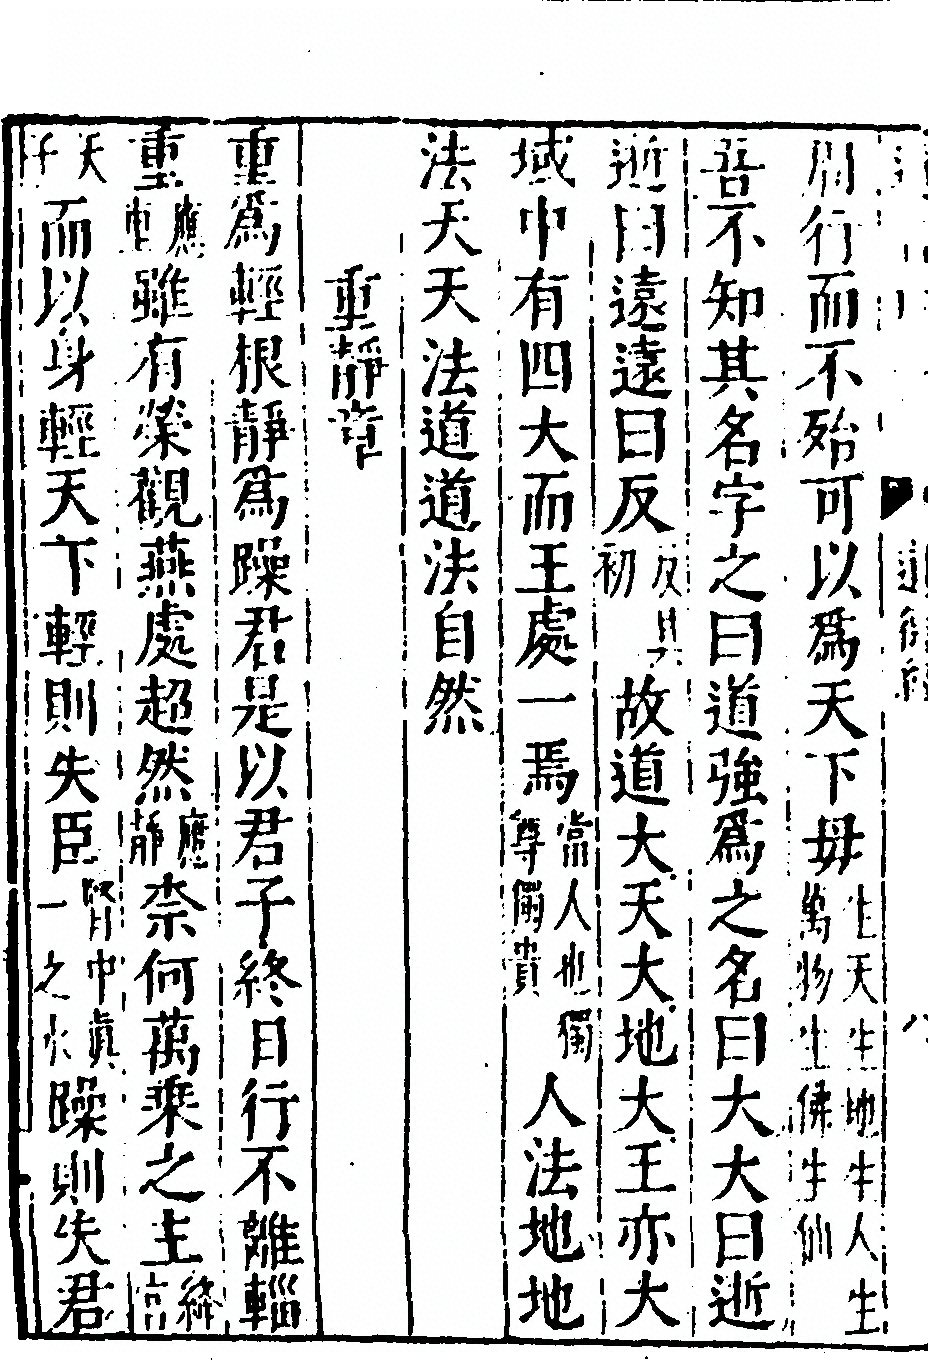 周行而不殆可以為天下毋生天生地生人生萬物生佛生仙
吾不知其名字之曰道強為之名曰大大曰逝
逝曰遠遠曰反反其初故道大天大地大王亦大
域中有四大而王處一焉當人也獨尊獨貴人法地地
法天天法道道法自然
重靜章
重為輕根靜為躁君是以君子終日行不離輜
重應重雖有榮觀燕處超然應靜奈何萬乘之主
天子而以身輕天下輕則失臣腎中真一之水躁則失君